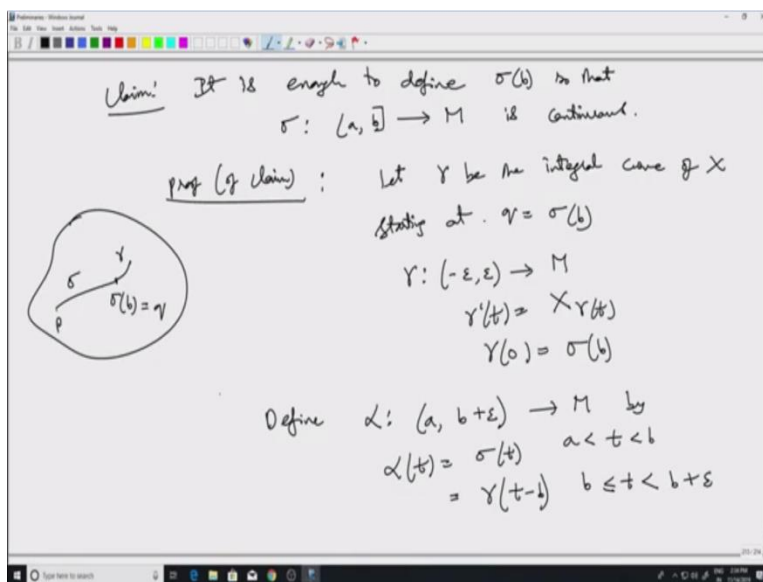 Preliminaries - Windows Journal
File Edit View Insert Actions Tools Help
Claim: It is enough to define σ(b) so that
σ: (a, b] → M is continuous.
proof (of claim) : Let γ be the integral curve of X
starting at q = σ(b)
γ: (-ε, ε) → M
γ'(t) = X γ(t)
γ(0) = σ(b)
σ γ
p σ(b) = q
Define α: (a, b+ε) → M by
α(t) = σ(t) a < t < b
= γ(t-b) b ≤ t < b+ε
Type here to search